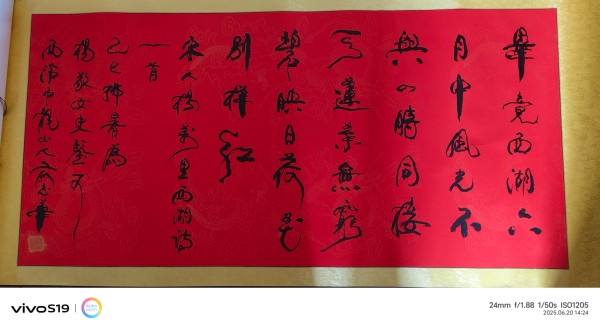 畢竟西湖六
月中風光不
與四時同接
天蓮葉無窮
碧映日荷花
別樣紅
宋人楊萬里西湖詩
一首
乙巳暑為
楊敬女史鑒
龍山人志華
vivo S19
24mm f/1.88 1/50s ISO1205
2025.06.20 14:24